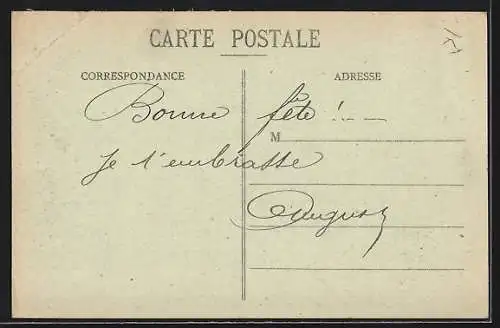 CARTE POSTALE
CORRESPONDANCE ADRESSE
Bonne fête !...
M
Je t'embrasse